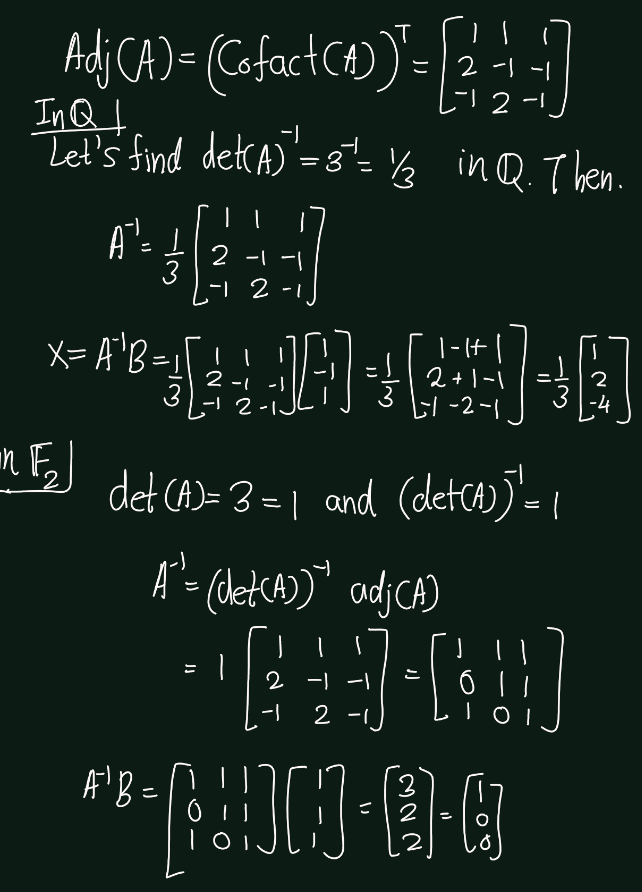 Adj(A) = (Cofact(A))^T = [1 1 1; 2 -1 -1; -1 2 -1]
In Q
Let's find det(A)^-1 = 3^-1 = 1/3 in Q. Then.
A^-1 = 1/3 [1 1 1; 2 -1 -1; -1 2 -1]
X = A^-1 B = 1/3 [1 1 1; 2 -1 -1; -1 2 -1] [1; -1; 1] = 1/3 [1-1+1; 2+1-1; -1-2-1] = 1/3 [1; 2; -4]
n F_2
det(A) = 3 = 1 and (det(A))^-1 = 1
A^-1 = (det(A))^-1 adj(A)
= 1 [1 1 1; 2 -1 -1; -1 2 -1] = [1 1 1; 0 1 1; 1 0 1]
A^-1 B = [1 1 1; 0 1 1; 1 0 1] [1; 1; 1] = [3; 2; 2] = [1; 0; 0]